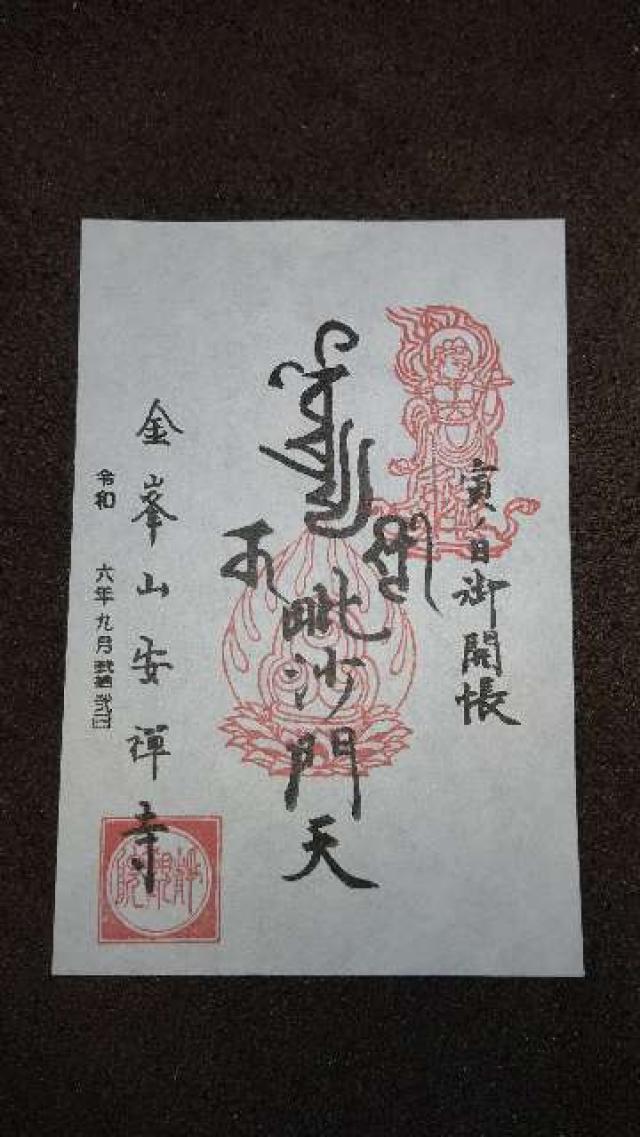 寅ノ日御開帳
毘沙門天
金峯山安禅寺
令和 六年九月弐拾弐日
静観院